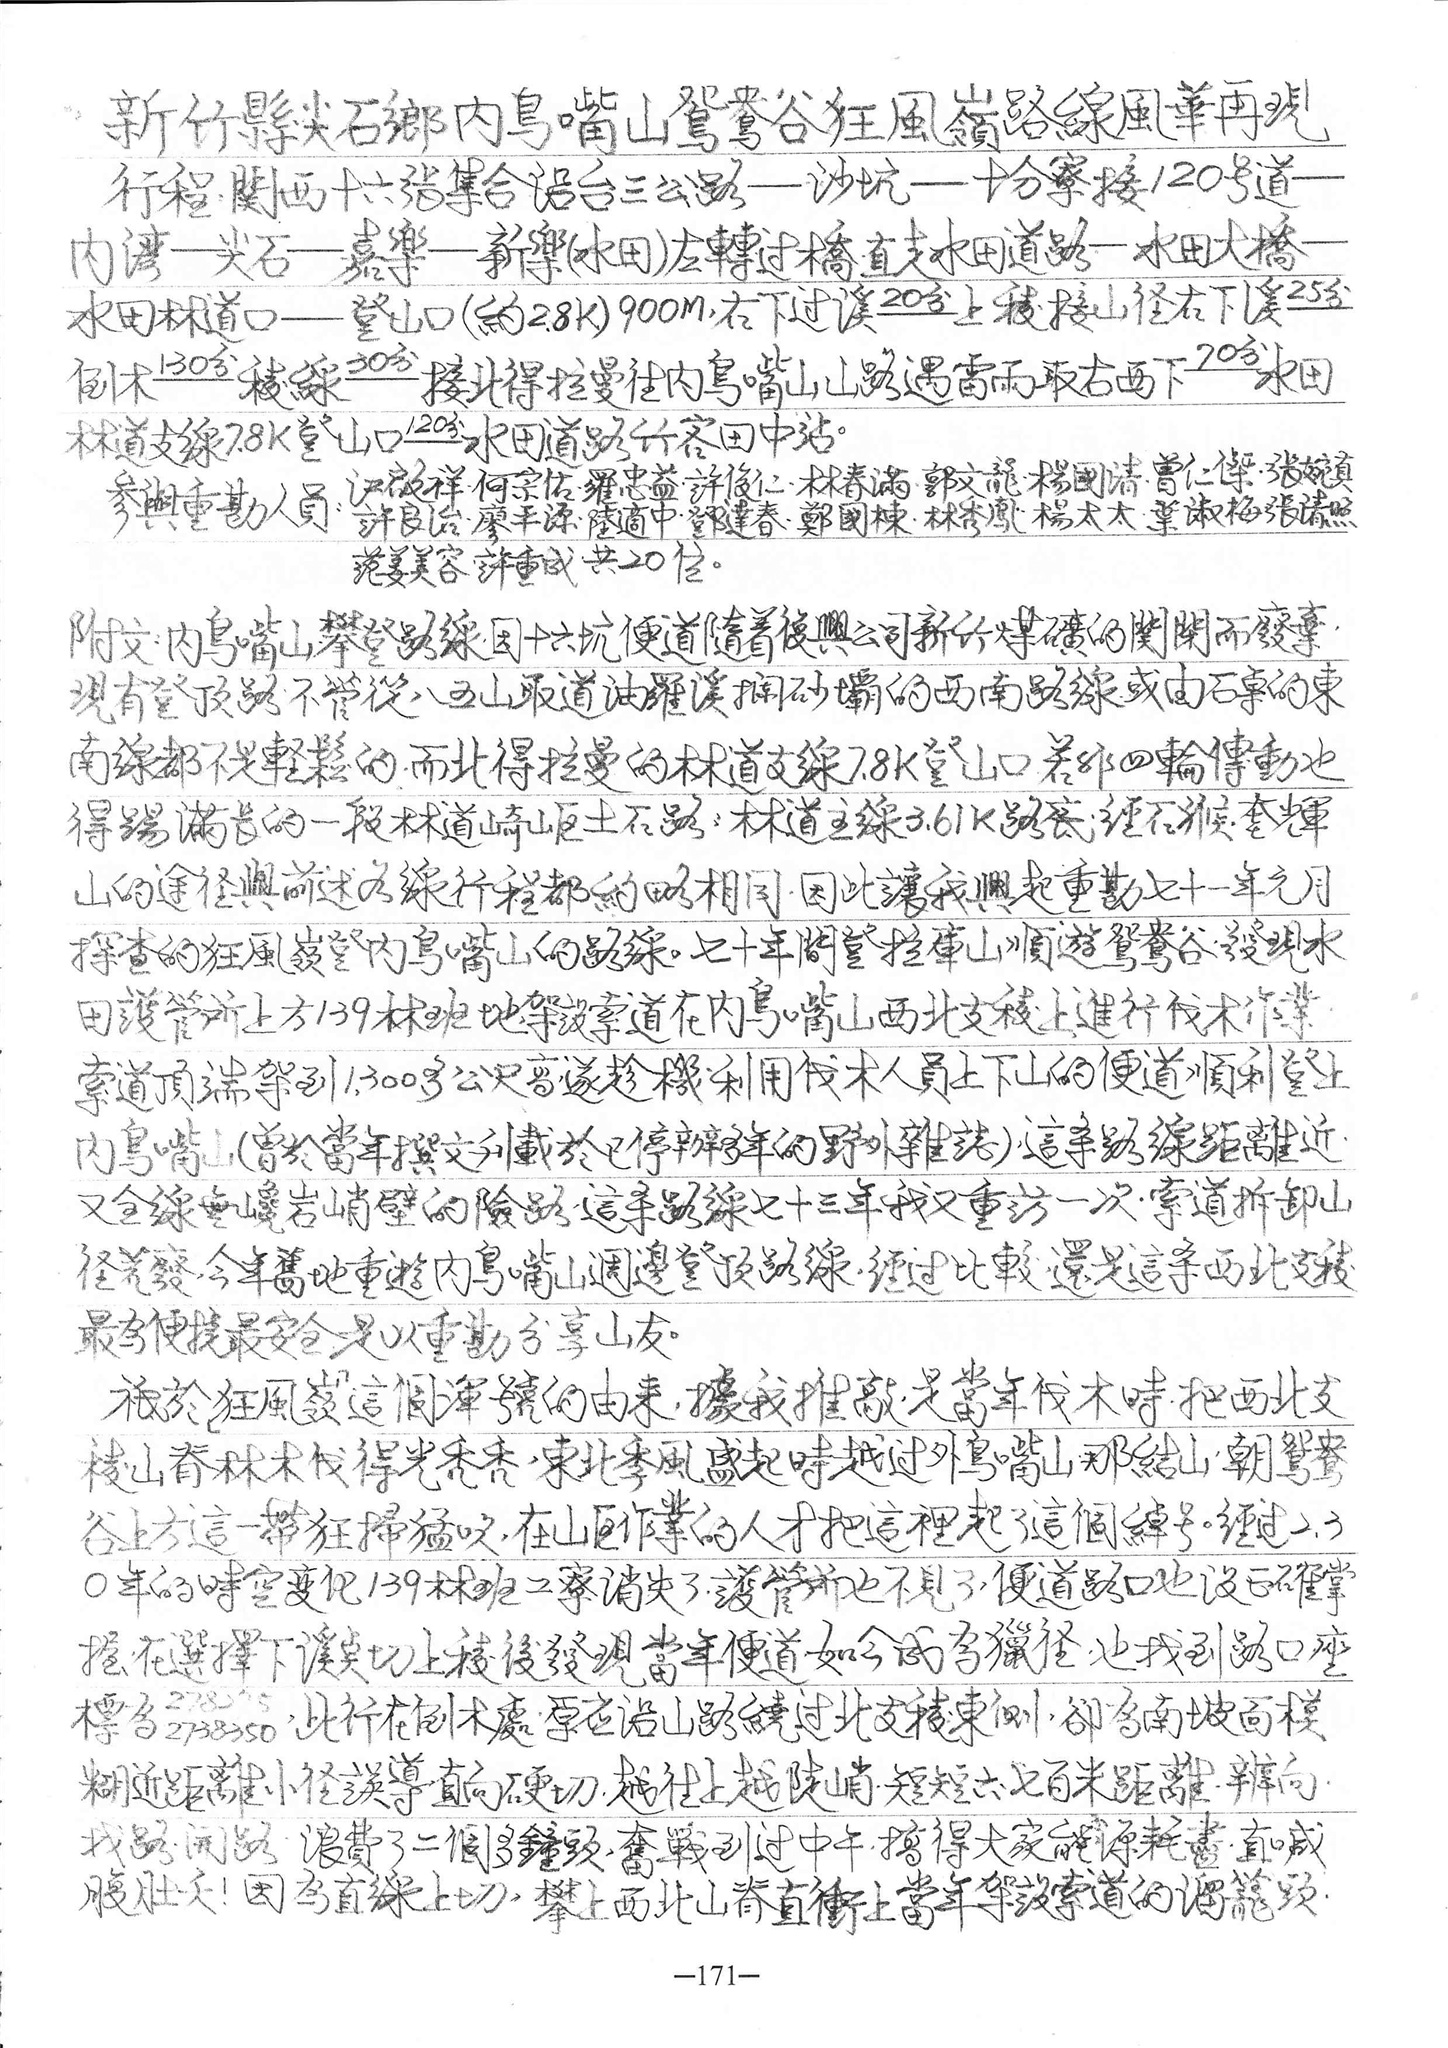 新竹縣尖石鄉內鳥嘴山鴛鴦谷狂風嶺路線風華再現
行程·関西十六張集合沿台三公路—沙坑—十分寮接120号道—
內湾—尖石—嘉樂—新樂(水田)左轉过橋直走水田道路—水田大橋—
水田林道口—登山口(約2.8K)900M,右下过溪20分上稜接山径右下溪25分
倒木130分稜線30分接北得拉曼往內鳥嘴山山路遇雷雨取右西下70分水田
林道支線7.8K登山口120分水田道路竹客田中站。
參與重勘人員:江啟祥·何宗佑·羅忠益·許俊仁·林春滿·郭文龍·楊國清·曾仁傑·張婉貞
許良治·廖平源·陸適中·鄧達春·鄭國棟·林秀鳳·楊太太·葉淑梅·張清照
范姜美容·許重成·共20位。
附文:內鳥嘴山攀登路線·因十六坑便道隨着復興公司新竹煤礦的関閉而廢棄·
現有登頂路·不管從八五山取道油羅溪攔砂壩的西南路線·或由石卓的東
南線都不是輕鬆的·而北得拉曼的林道支線7.8K登山口·若非四輪傳動也
得踢滿長的一段林道崎嶇土石路;林道主線3.61K路底,經石猴·李輝
山的途径與前述各線行程都約略相同·因此讓我興起重勘七十一年元月
探查的狂風嶺登內鳥嘴山的路線。七十年間登拉庫山順遊鴛鴦谷·發現水
田護管所上方139林班地·架設索道在內鳥嘴山西北支稜上進行伐木作業
索道頂端架到1,300多公尺旁·遂趁機利用伐木人員上下山的便道順利登上
內鳥嘴山(曾於當年撰文刊載於已停辦多年的野外雜誌)·這条路線距離近·
又全線無巉岩峭壁的險路·這条路線七十三年我又重訪一次·索道拆卸山
径荒廢·今年舊地重遊內鳥嘴山週邊登頂路線·經过比較·還是這条西北支稜
最為便捷最安全·是以重勘分享山友。
祗於「狂風嶺」這個渾號的由來,據我推敲·是當年伐木時·把西北支
稜山脊林木伐得光禿禿,東北季風盛起時越过外鳥嘴山·那結山·朝鴛鴦
谷上方這一帶狂掃猛吹,在山區作業的人才把這裡起了這個綽号。經过2、3
0年的時空変化139林班工寮消失了·護管所也不見了,便道路口也没正確掌
握·在選擇下溪奌切上稜後發現當年便道如今成為獵径·也找到路口座
標為2738350,此行在倒木處·原應沿山路繞过北支稜東側,卻為南坡面模
糊近距離小径誤導直向硬切·越往上越陡峭·短短六七百米距離·辨向·
找路·開路·浪費了二個多鐘頭,奮戰到过中午·搞得大家能源耗盡·直喊
腹肚夭!因為直線上切,攀上西北山脊直衝上當年架設索道的溜籠頭·
—171—